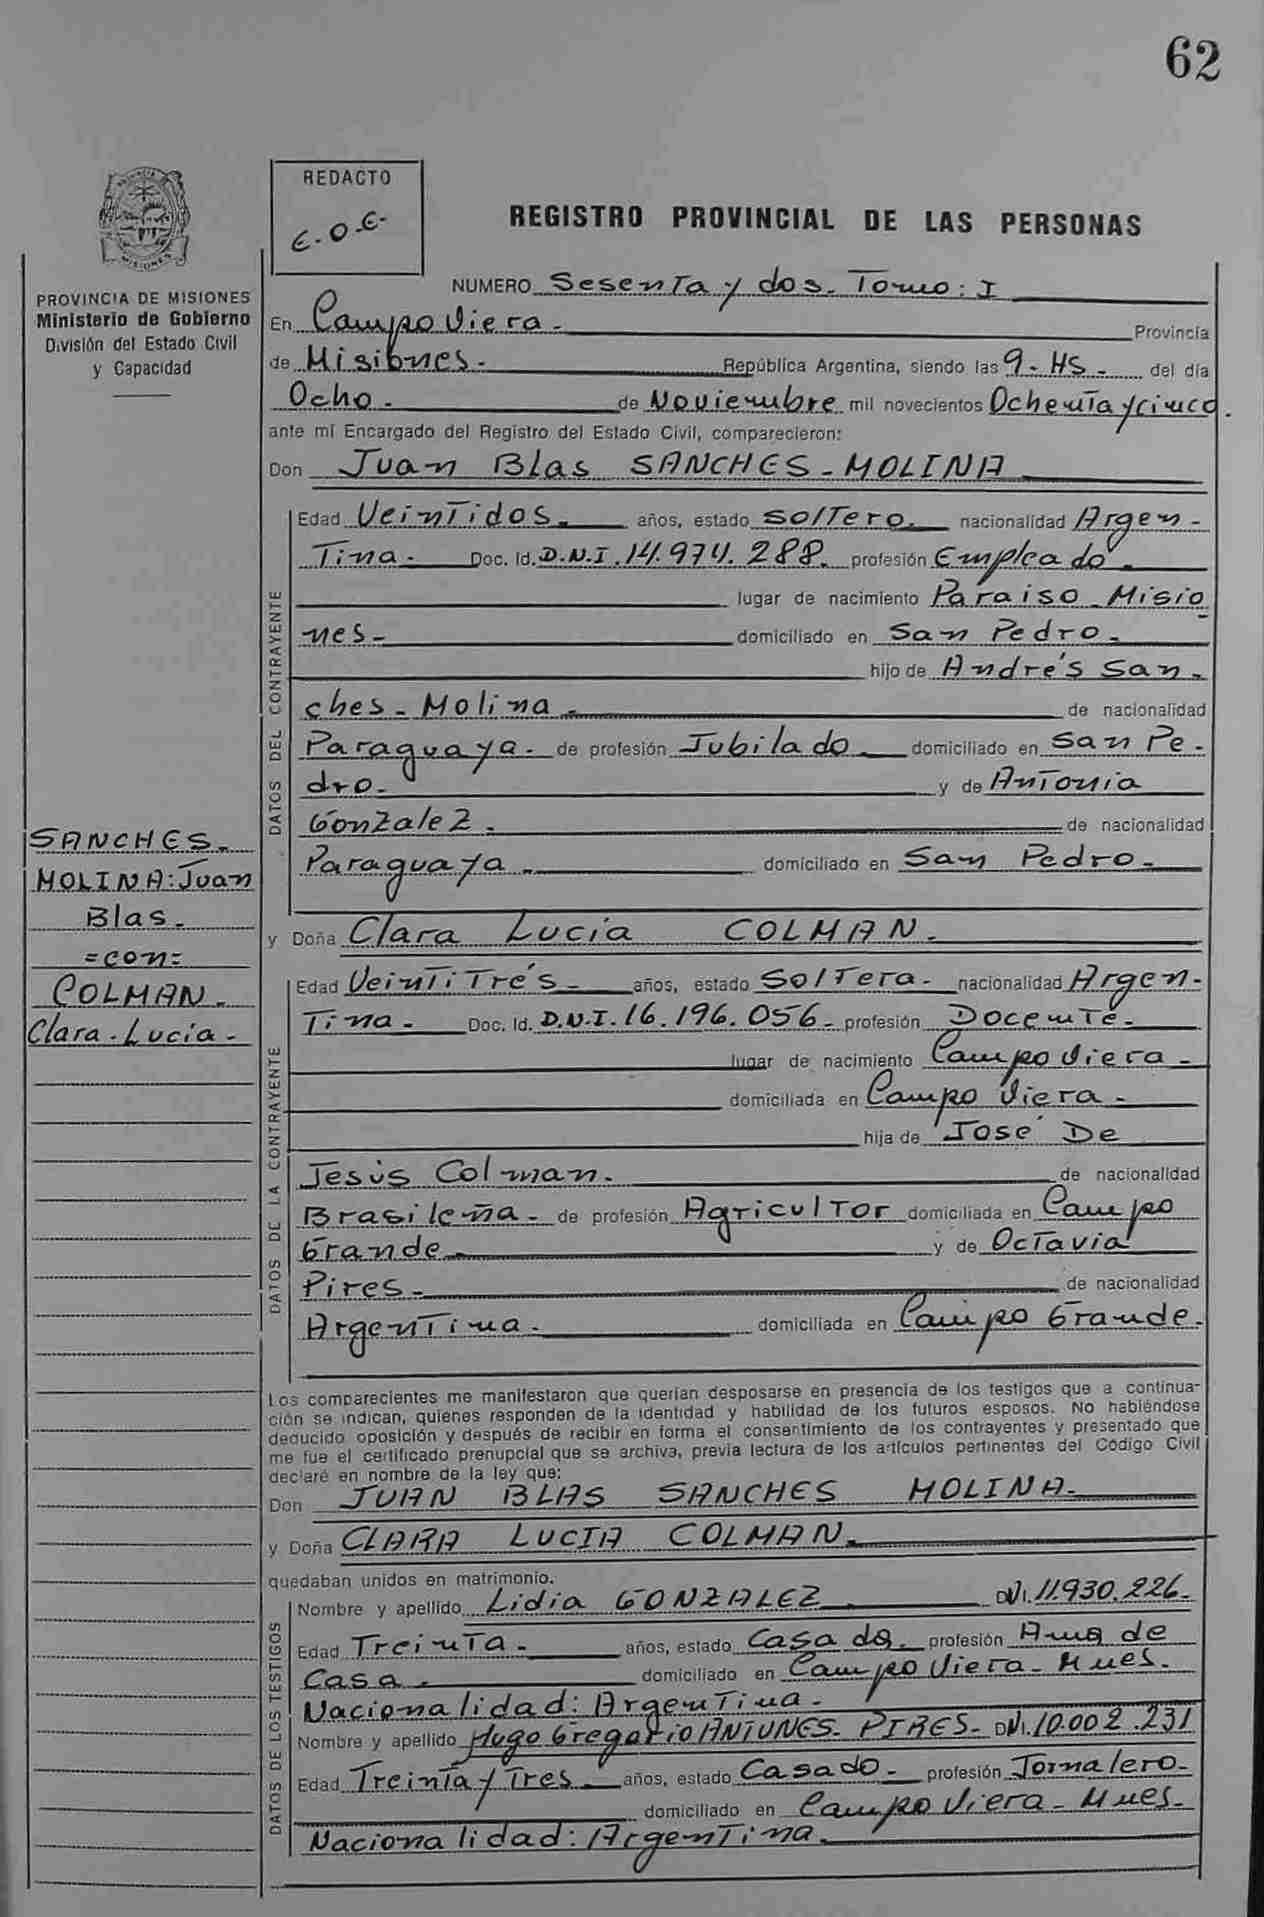 62
REDACTO
E.O.E-
REGISTRO PROVINCIAL DE LAS PERSONAS
PROVINCIA DE MISIONES
Ministerio de Gobierno
División del Estado Civil
y Capacidad
NUMERO Sesenta y dos. Tomo: I
En Campo Viera. Provincia
de Misiones. República Argentina, siendo las 9.-HS. del día
Ocho. de Noviembre mil novecientos Ochenta y cinco.
ante mí Encargado del Registro del Estado Civil, comparecieron:
Don Juan Blas SANCHES-MOLINA
DATOS DEL CONTRAYENTE
Edad Veintidos. años, estado soltero. nacionalidad Argen-
tina. Doc. Id. D.N.I. 14.974.288. profesión Empleado.
lugar de nacimiento Paraiso Misio
nes- domiciliado en San Pedro.
hijo de Andrés San-
ches-Molina. de nacionalidad
Paraguaya. de profesión Jubilado. domiciliado en San Pe-
dro. y de Antonia
Gonzalez. de nacionalidad
Paraguaya. domiciliado en San Pedro.
SANCHES-
MOLINA: Juan
Blas.
=con=
COLMAN.
Clara-Lucía-
y Doña Clara Lucía COLMAN.
DATOS DE LA CONTRAYENTE
Edad Veintitrés- años, estado Soltera. nacionalidad Argen-
tina. Doc. Id. D.N.I. 16.196.056. profesión Docente.
lugar de nacimiento Campo Viera-
domiciliada en Campo Viera-
hija de José De
Jesús Colman. de nacionalidad
Brasileña. de profesión Agricultor domiciliada en Campo
Grande y de Octavia
Pires. de nacionalidad
Argentina. domiciliada en Campo Grande.
Los comparecientes me manifestaron que querían desposarse en presencia de los testigos que a continua-
ción se indican, quienes responden de la identidad y habilidad de los futuros esposos. No habiéndose
deducido oposición y después de recibir en forma el consentimiento de los contrayentes y presentado que
me fue el certificado prenupcial que se archiva, previa lectura de los artículos pertinentes del Código Civil
declaré en nombre de la ley que:
Don JUAN BLAS SANCHES MOLINA.
y Doña CLARA LUCIA COLMAN.
quedaban unidos en matrimonio.
DATOS DE LOS TESTIGOS
Nombre y apellido Lidia GONZALEZ DNI. 11.930.226.
Edad Treinta. años, estado Casada. profesión Ama de
Casa. domiciliado en Campo Viera- Mnes.
Nacionalidad: Argentina.
Nombre y apellido Hugo Gregorio ANTUNES- PIRES- DNI. 10.002.231
Edad Treinta y Tres años, estado Casado. profesión Jornalero.
domiciliado en Campo Viera- Mnes-
Nacionalidad: Argentina.